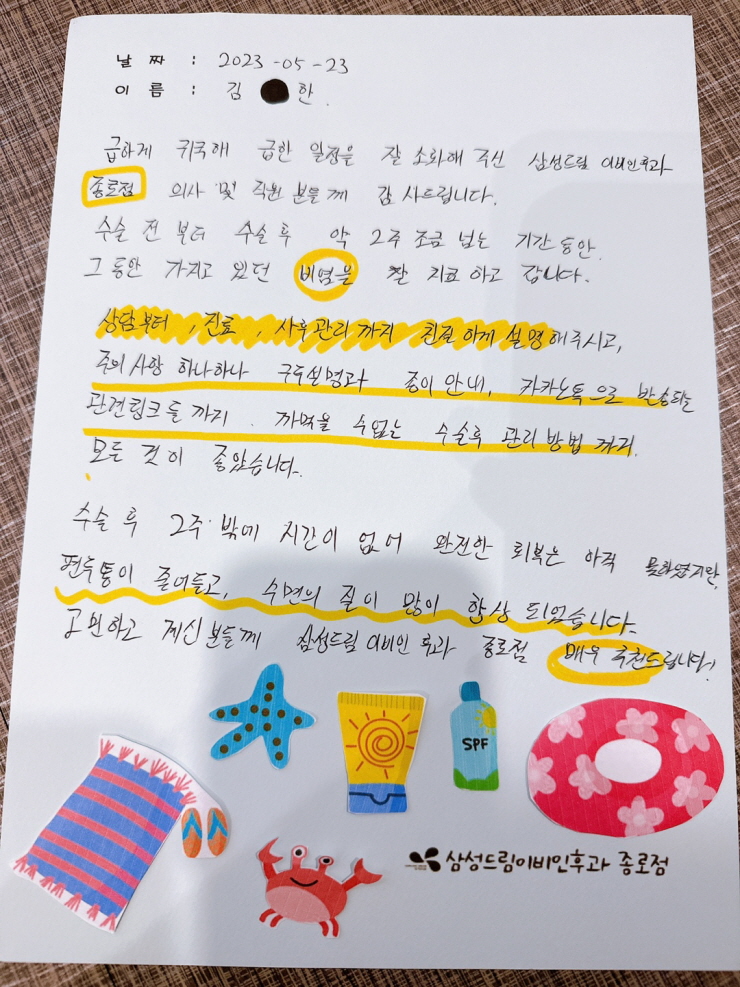 날 짜 : 2023-05-23
이 름 : 김 한.
급하게 귀국해 급한 일정을 잘 소화해 주신 삼성드림 이비인후과
종로점 의사 및 직원 분들께 감사드립니다.
수술 전 부터 수술 후 약 2주 조금 넘는 기간 동안.
그 동안 가지고 있던 비염을 잘 치료 하고 갑니다.
상담부터 , 진료 , 사후관리 까지 친절하게 설명해주시고,
주의 사항 하나하나 구두설명과 종이 안내, 카카오톡으로 발송되는
관련링크들 까지 . 까먹을 수 없는 수술후 관리 방법 까지.
모든 것이 좋았습니다.
수술 후 2주 밖에 시간이 없어 완전한 회복은 아직 못하였지만,
편두통이 줄어들고, 수면의 질이 많이 향상 되었습니다.
고민하고 계신 분들께 삼성드림 이비인 후과 종로점 매우 추천드립니다!
SPF
삼성드림이비인후과 종로점